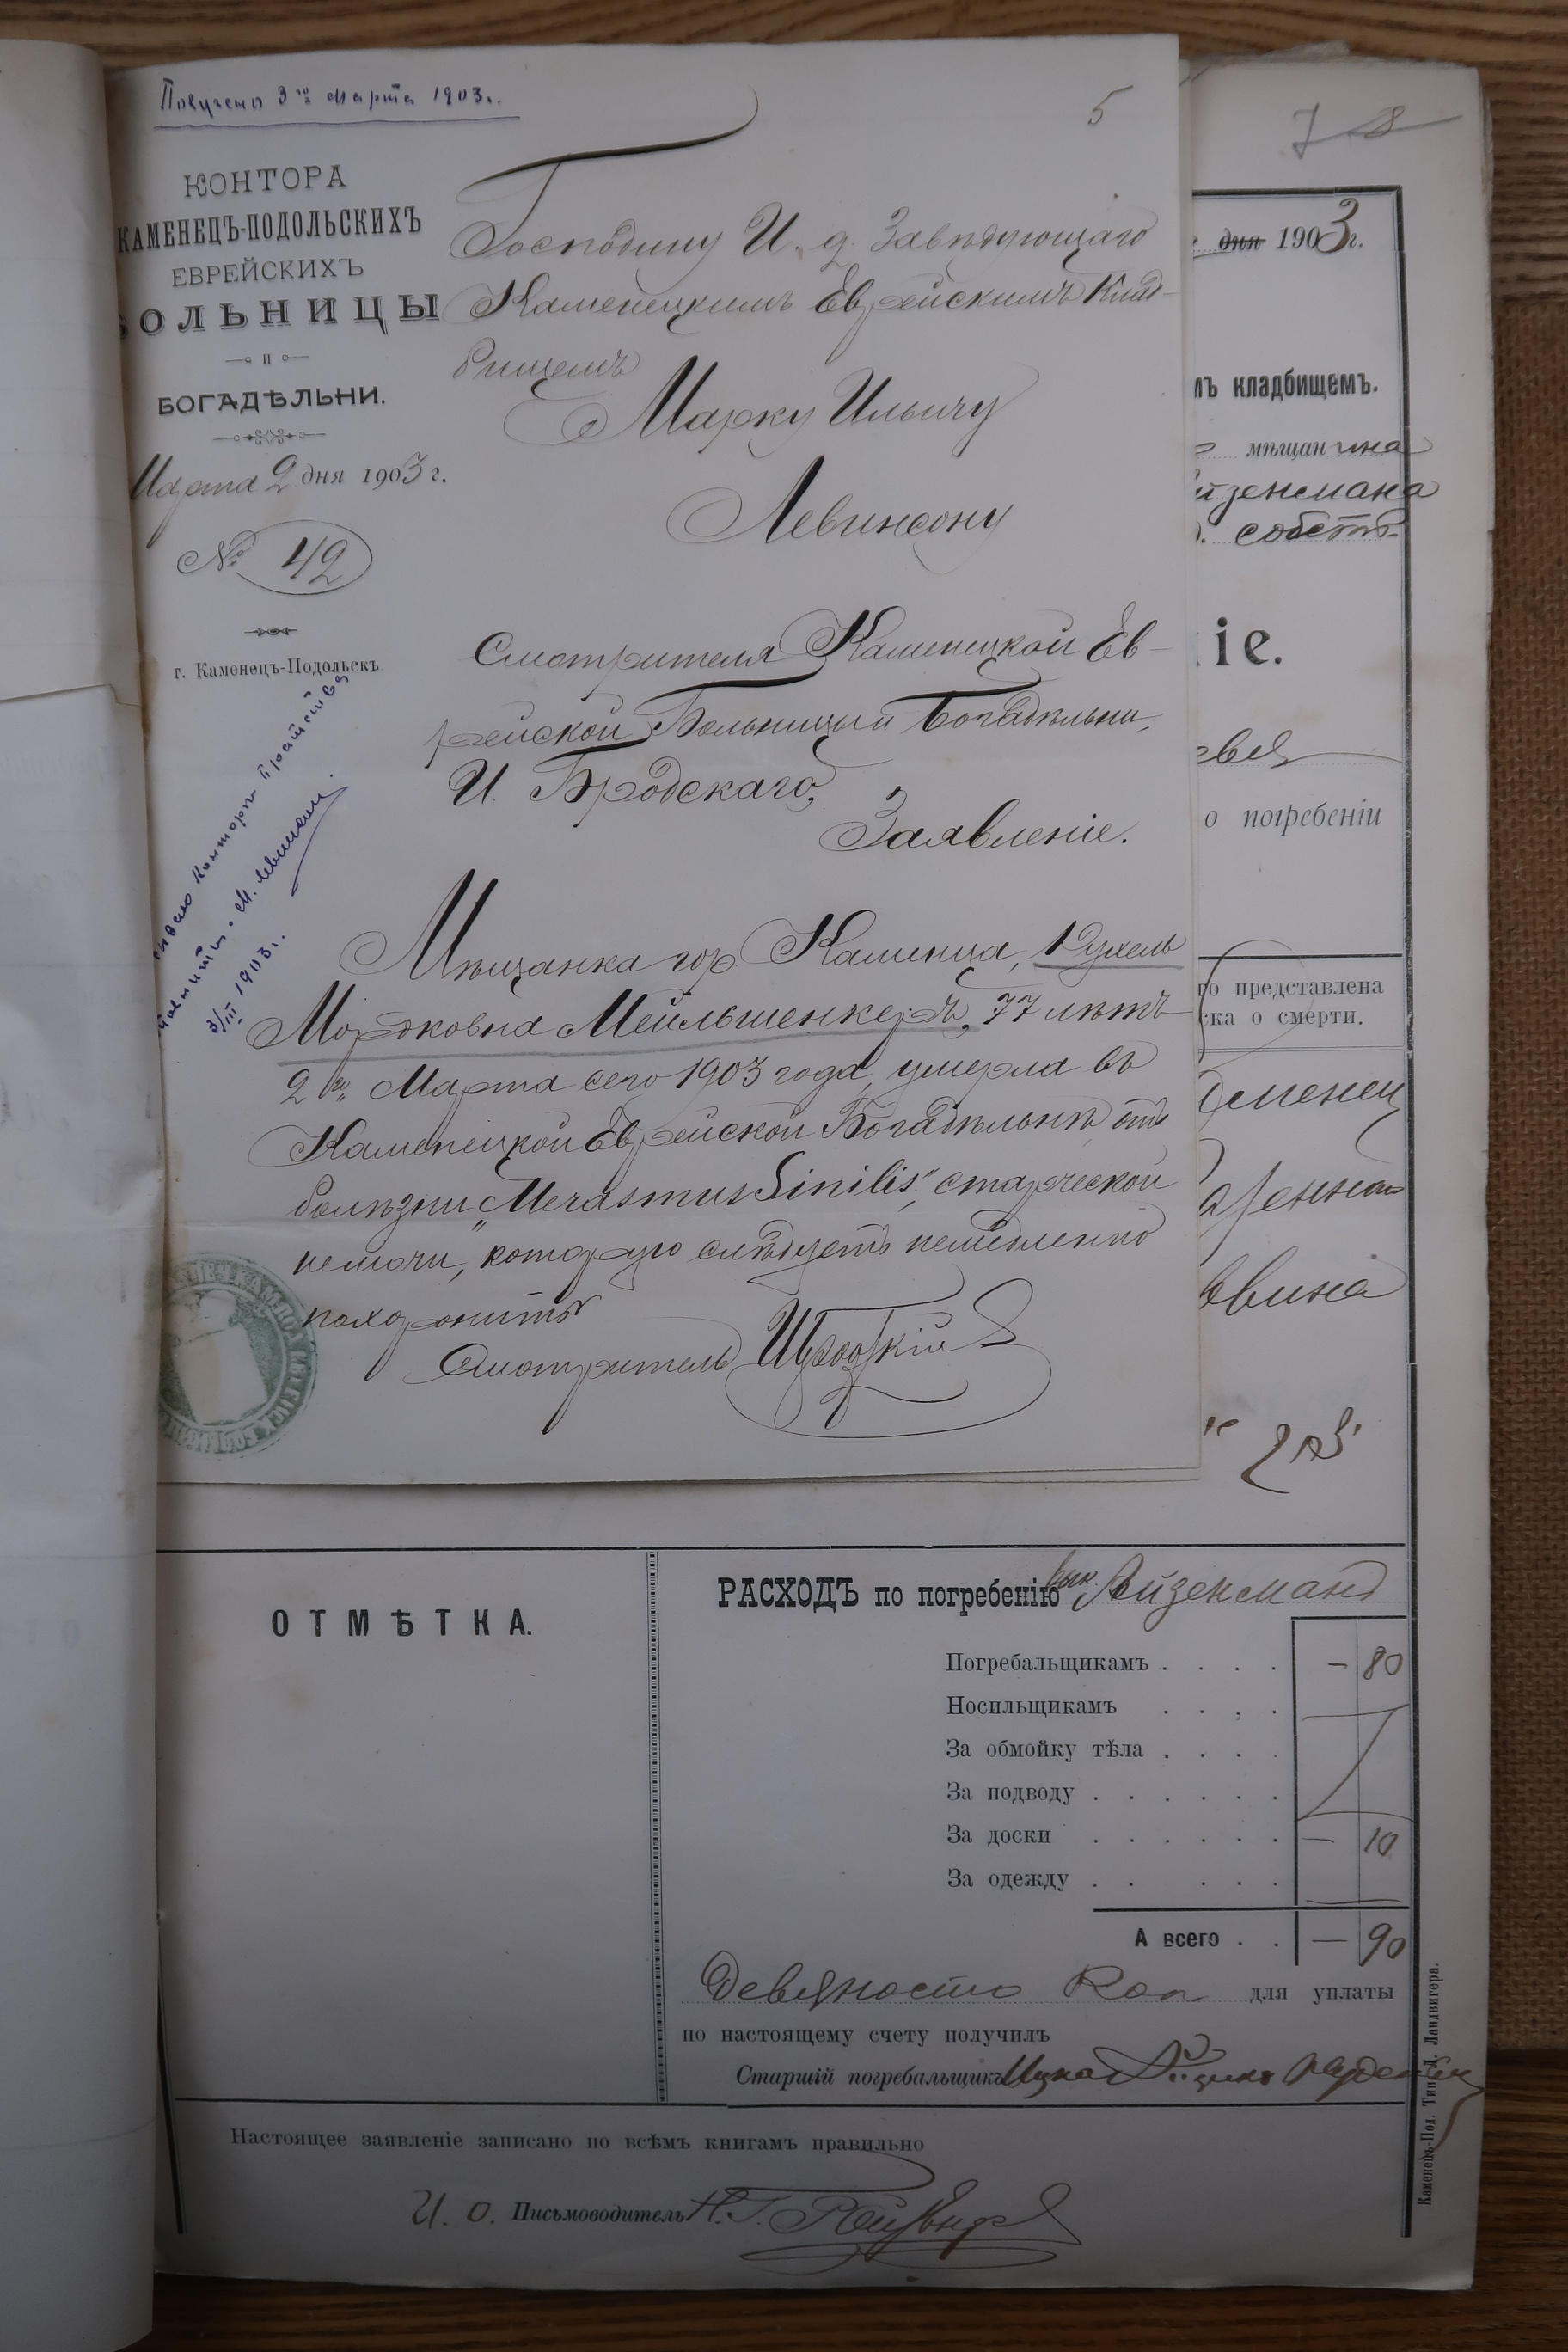 Получено 3го Марта 1903 г.
5
КОНТОРА
КАМЕНЕЦЪ-ПОДОЛЬСКИХЪ
ЕВРЕЙСКИХЪ
БОЛЬНИЦЫ
И
БОГАДѢЛЬНИ.
Марта 2 дня 1903 г.
№ 42
г. Каменецъ-Подольскъ
Господину И. д. Завѣдующаго
Каменецкимъ Еврейскимъ Клад-
бищемъ
Марку Ильичу
Левинсону
Смотрителя Каменецкой Ев-
рейской Больницы и Богадѣльни,
И. Бродскаго,
Заявленіе.
Мѣщанка гор. Каменца, Рухель
Мордковна Мейльшенкеръ, 77 лѣтъ
2го Марта сего 1903 года, умерла въ
Каменецкой Еврейской Богадѣльнѣ, отъ
болѣзни „Merasmus Sinilis", старческой
немочи, которую слѣдуетъ немедленно
похоронить
Смотритель И Бродскій
Конторѣ Братства
М. Левинсон
3/III 1903 г.
7 8
дня 1903 г.
мъ кладбищемъ.
мѣщанина
йзенмана
собств.
іе.
о погребеніи
го представлена
ска о смерти.
ОТМѢТКА.
РАСХОДЪ по погребенію Айзенманъ
Погребальщикамъ . . . . — 80
Носильщикамъ . . , .
За обмойку тѣла . . . .
За подводу . . . . . .
За доски . . . . . . — 10
За одежду . . . . .
А всего . . — 90
Девяносто Коп. для уплаты
по настоящему счету получилъ
Старшій погребальщикъ
Настоящее заявленіе записано по всѣмъ книгамъ правильно
И. О. Письмоводитель
Каменецъ-Под. Тип. Л. Ландвигера.